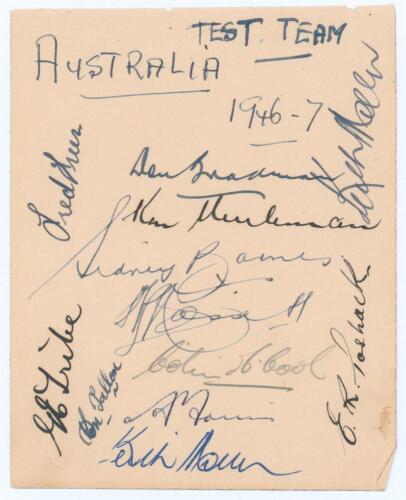 TEST. TEAM
AUSTRALIA
1946-7
Keith Miller
Fred Freer
Don Bradman
Ken Meuleman
Sidney Barnes
A L Hassett
Colin McCool
E. R. Toshack
G E Tribe
Don Tallon
A Morris
Keith Miller